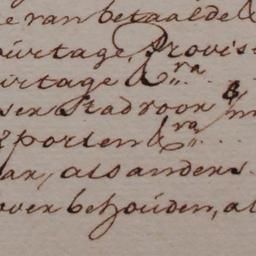 e van betaalde
oúrtage, Provis
úrtage &ra
sen Stad voor
Porten &ra
ar, als anders
over behoúden, al